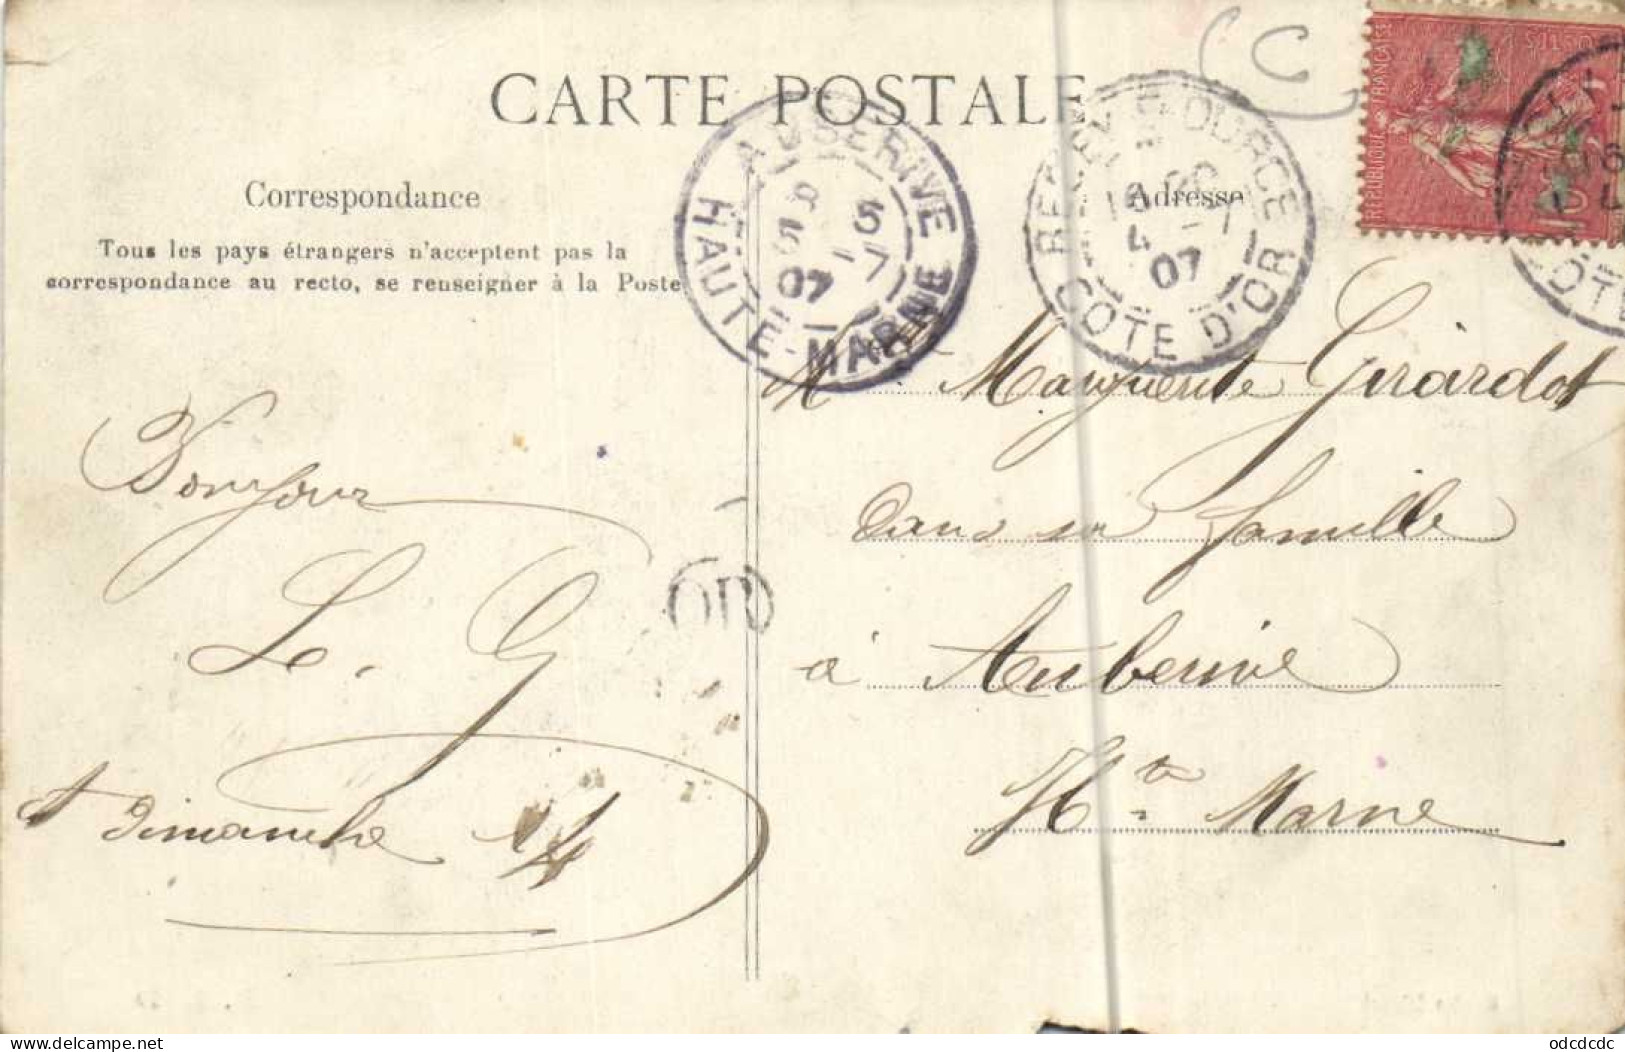 CARTE POSTALE
Correspondance
Tous les pays étrangers n'acceptent pas la
correspondance au recto, se renseigner à la Poste
Adresse
AUBERIVE
HAUTE-MARNE
07
RECEY-S-OURCE
COTE D'OR
07
REPUBLIQUE FRANÇAISE
POSTES
10
Bonjour
L. G
Dimanche 14
OR
M Marguerite Girardot
Dans sa famille
à Auberive
Hte Marne
delcampe.net
odcdcdc